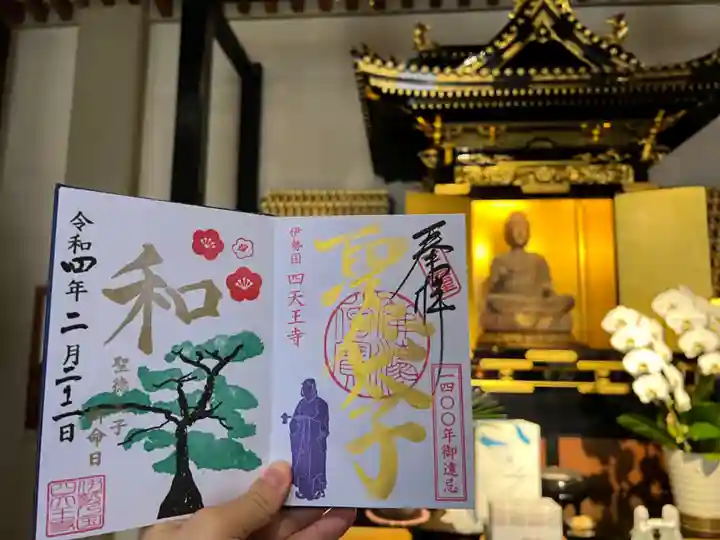 奉拝
一四〇〇年御遠忌
聖太子
伊勢国 四天王寺
和
聖徳太子
御命日
令和四年二月二十二日